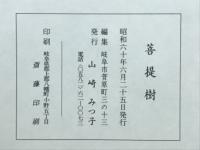 菩提樹
昭和六十年六月二十五日発行
編集 岐阜市菅原町三の十三
発行 山崎みつ子
電話(〇五八二)六二-〇〇七三
印刷 岐阜県郡上郡八幡町小野五丁目
斎藤印刷